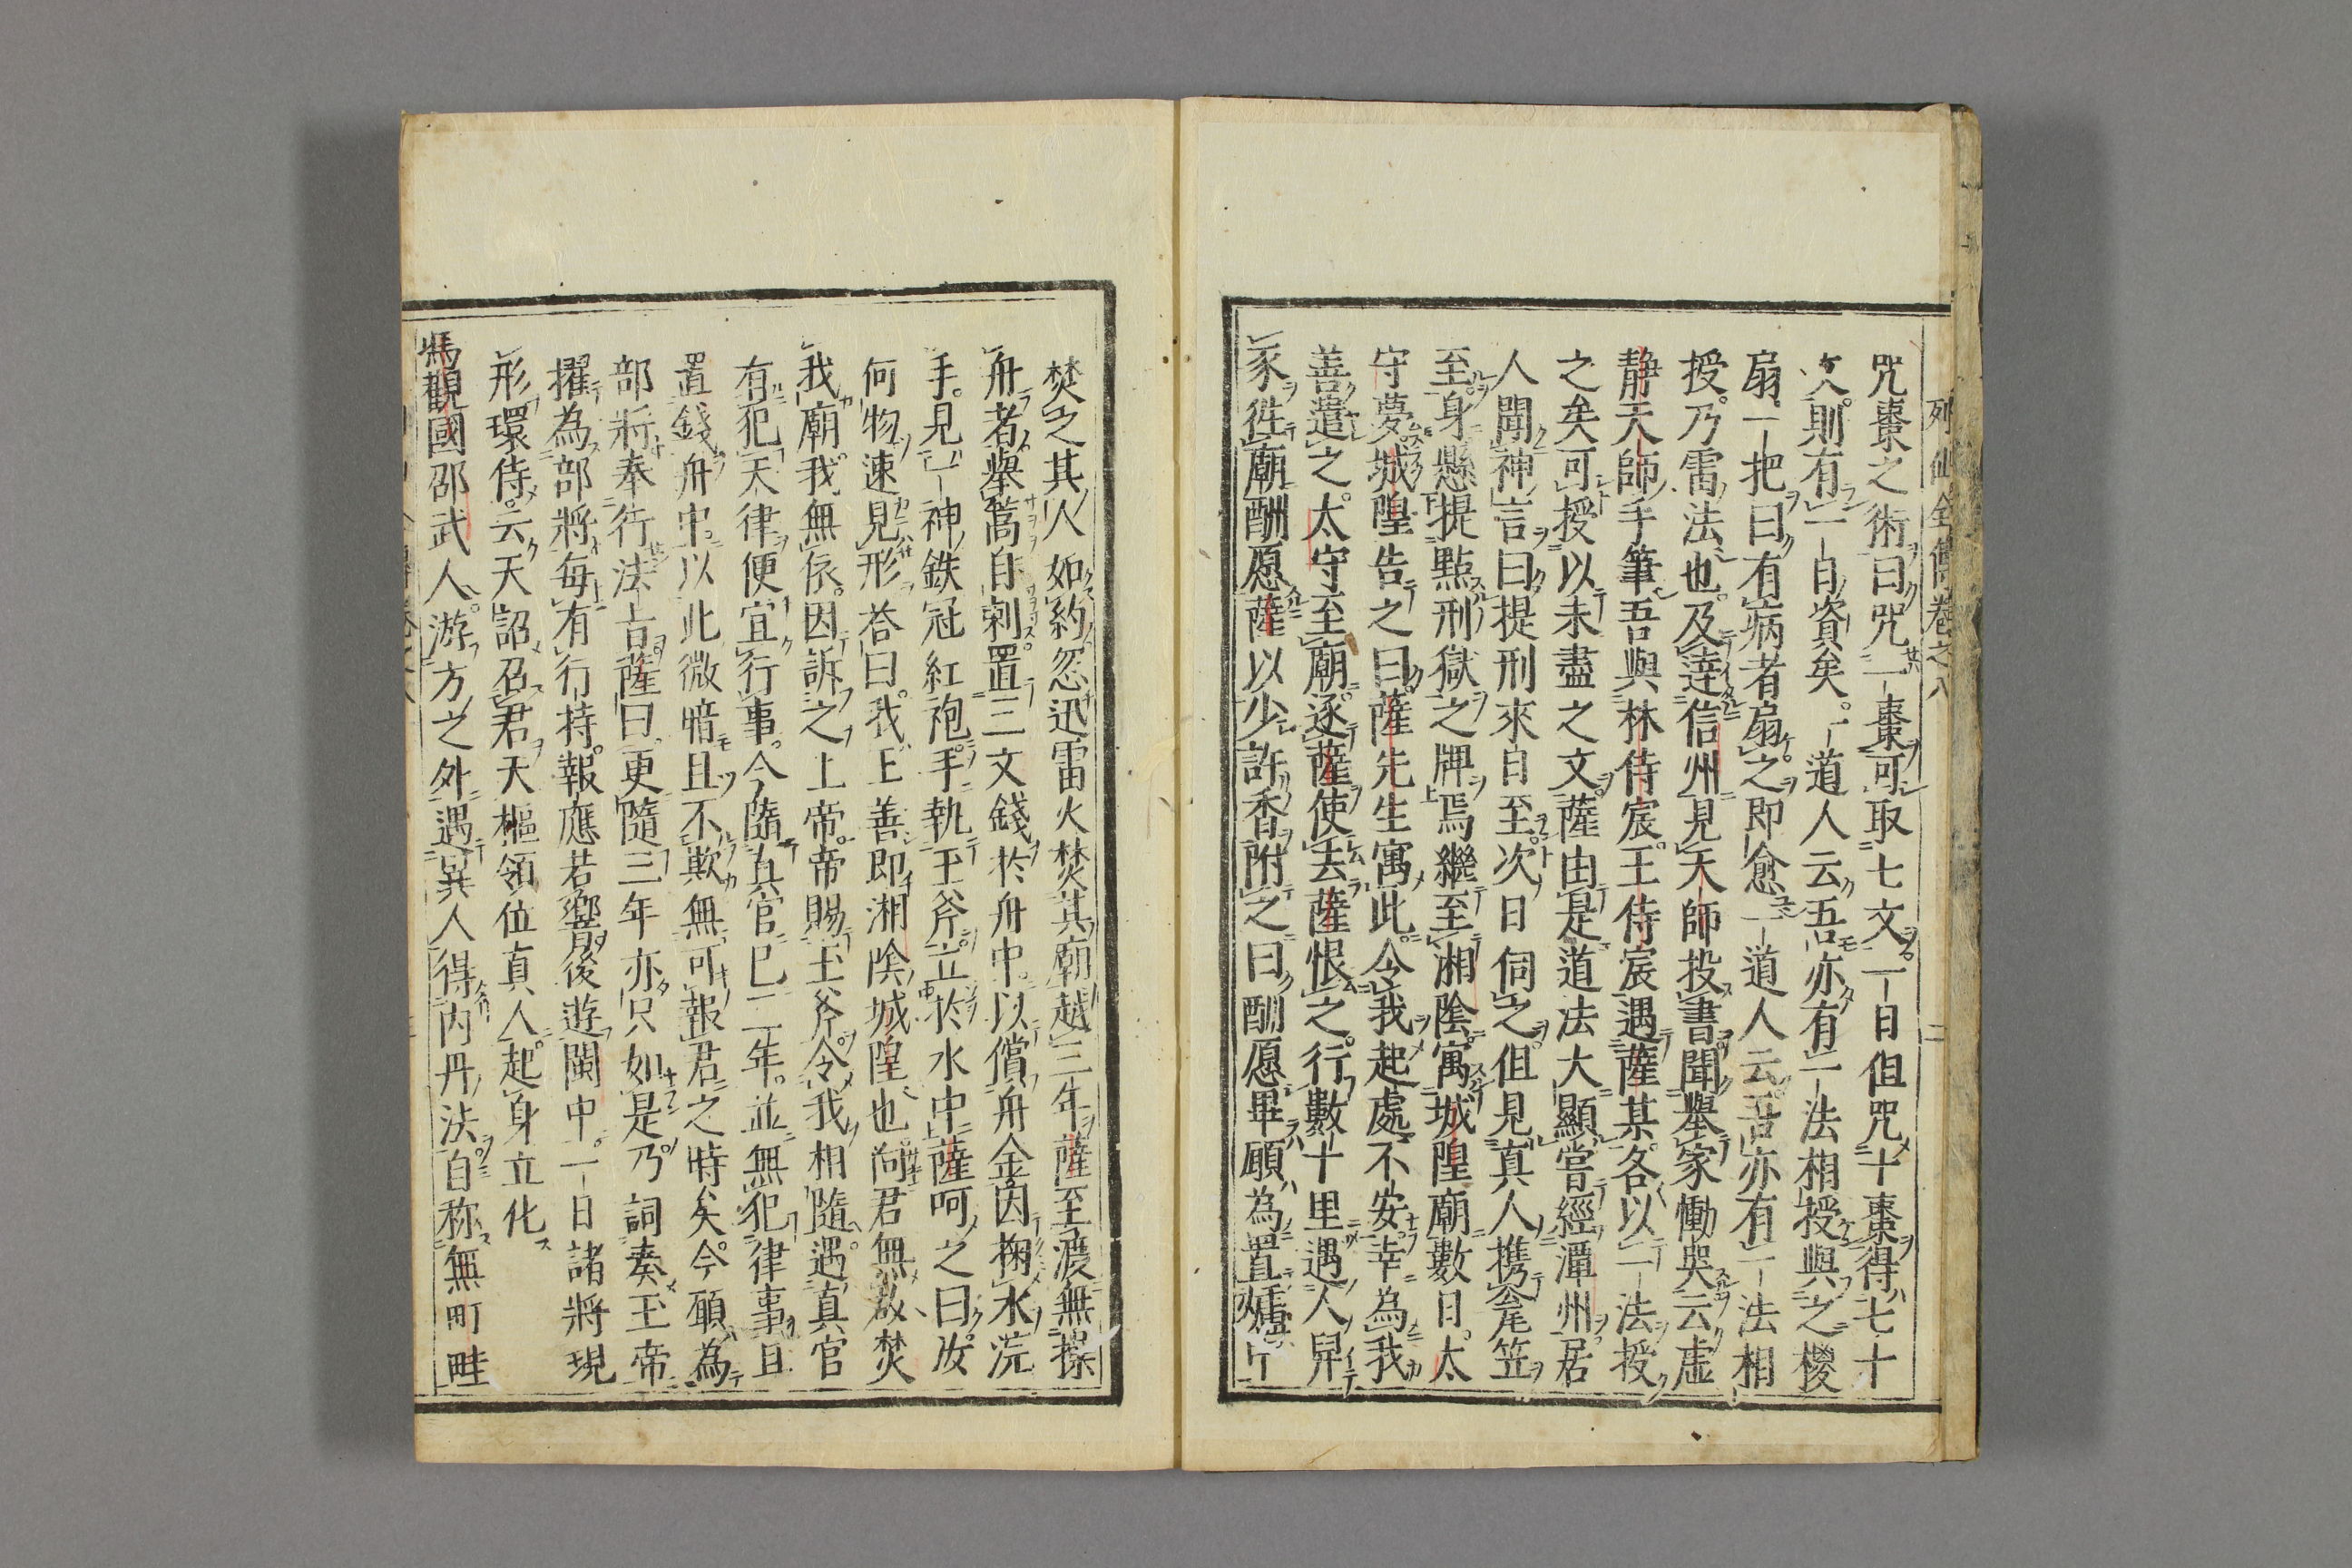 列仙全傳卷之八 二
咒棗之術曰咒一棗可取七文一日但咒十棗得七十
文則有一日資矣一道人云吾亦有一法相授與之椶
扇一把曰有病者扇之即愈一道人云吾亦有一法相
授乃雷法也及達信州見天師投書聞舉家慟哭云虛
靜天師手筆吾與林侍宸王侍宸遇薩某各以一法授
之矣可授以未盡之文薩由是道法大顯嘗經潭州居
人聞神言曰提刑來日至次日伺之但見真人携瓮笠
至身懸提點刑獄之牌焉繼至湘陰寓城隍廟數日太
守夢城隍告之曰薩先生寓此令我起處不安幸為我
善遣之太守至廟逐薩使去薩恨之行數十里遇人舁
豕徃廟酬愿薩以少許香附之曰酬愿畢願為置爐中
焚之其人如約忽迅雷火焚其廟越三年薩至渡無操
舟者舉篙自剌置三文錢於舟中以償舟金因掬水浣
手見一神鉄冠紅袍手執玉斧立於水中薩呵之曰汝
何物速見形荅曰我王善即湘陰城隍也向君無故焚
我廟我無依因訴之上帝帝賜玉斧令我相隨遇真官
有犯天律便宜行事今隨真官已二年並無犯律事且
置錢舟中以此微暗且不欺無可報君之時矣今願為
部將奉行法旨薩曰更隨三年亦只如是乃詞奏玉帝
擢為部將每有行持報應若響後遊閩中一日諸將現
形環侍云天詔召君天樞領位真人起身立化
馮觀國邵武人游方之外遇異人得內丹法自称無町畦